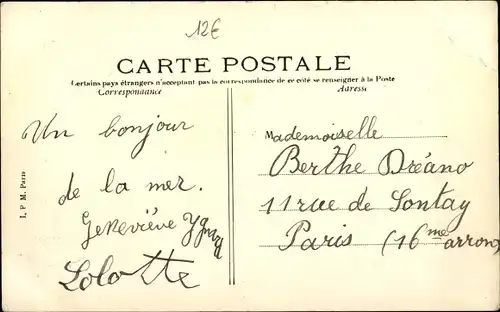 12€
CARTE POSTALE
Certains pays étrangers n'acceptant pas la correspondance de ce côté se renseigner à la Poste
Correspondance
Adresse
Un bonjour
de la mer.
Geneviève
Lolotte
I. P. M. Paris
Mademoiselle
Berthe Dréano
11 rue de Sontay
Paris (16me arron)